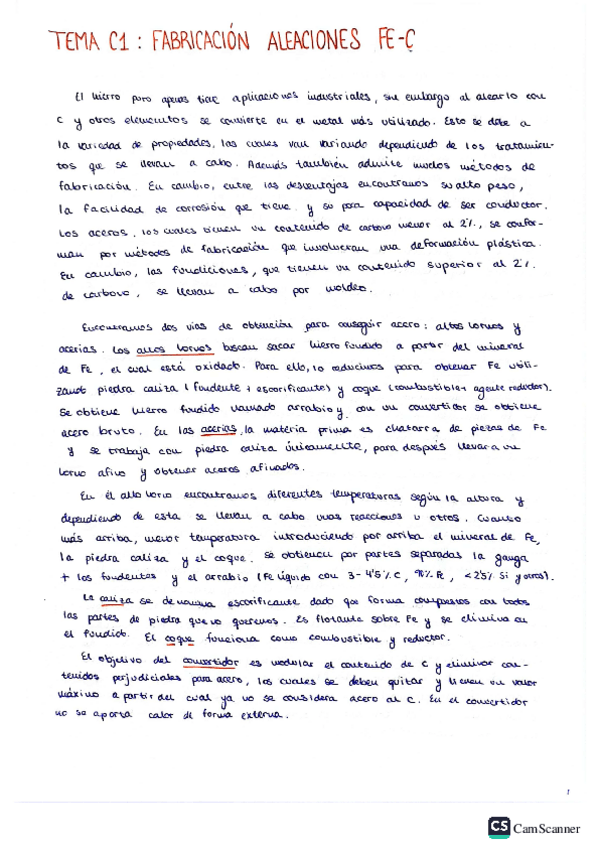 TEMA C1 : FABRICACIÓN ALEACIONES FE-C
El hierro puro apenas tiene aplicaciones industriales, sin embargo al alearlo con
C y otros elementos se convierte en el metal más utilizado. Esto se debe a
la variedad de propiedades, las cuales van variando dependiendo de los tratamien-
tos que se llevan a cabo. Además también admite muchos métodos de
fabricación. En cambio, entre las desventajas encontramos su alto peso,
la facilidad de corrosión que tiene y su poca capacidad de ser conductor.
Los aceros, los cuales tienen un contenido de carbono menor al 2%, se confor-
man por métodos de fabricación que involucran una deformación plástica.
En cambio, las fundiciones, que tienen un contenido superior al 2%
de carbono, se llevan a cabo por moldeo.
Encontramos dos vías de obtención para conseguir acero: altos hornos y
acerías. Los altos hornos buscan sacar hierro fundido a partir del mineral
de Fe, el cual está oxidado. Para ello, lo reducimos para obtener Fe utili-
zando piedra caliza (fundente + escorificante) y coque (combustible + agente reductor).
Se obtiene hierro fundido llamado arrabio y, con un convertidor se obtiene
acero bruto. En las acerías, la materia prima es chatarra de piezas de Fe
y se trabaja con piedra caliza únicamente, para después llevar a un
horno afino y obtener aceros afinados.
En el alto horno encontramos diferentes temperaturas según la altura y
dependiendo de esta se llevan a cabo unas reacciones u otros. Cuanto
más arriba, menor temperatura introduciendo por arriba el mineral de Fe,
la piedra caliza y el coque. Se obtienen por partes separadas la ganga
+ los fundentes y el arrabio (Fe líquido con 3-4'5% C, % Fe, <2'5% Si y otros).
La caliza se denomina escorificante dado que forma compuestos con todas
las partes de piedra que no queremos. Es flotante sobre Fe y se elimina en
el fundido. El coque funciona como combustible y reductor.
El objetivo del convertidor es modular el contenido de C y eliminar con-
tenidos perjudiciales para acero, los cuales se deben quitar y tienen un valor
máximo a partir del cual ya no se considera acero al C. En el convertidor
no se aporta calor de forma externa.
1
CS CamScanner